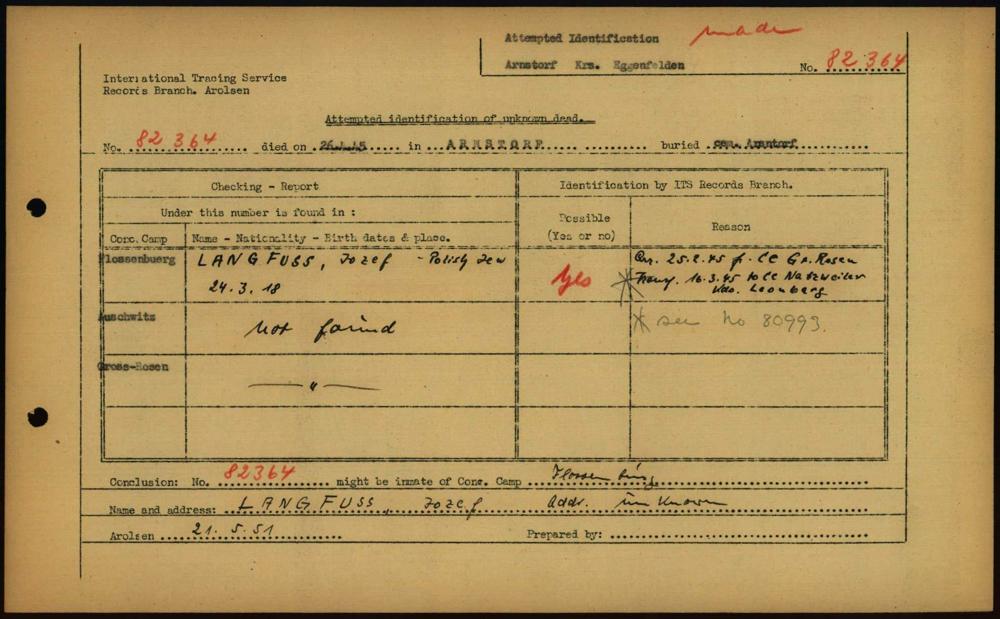 Attempted Identification made
Arnstorf Krs. Eggenfelden No. 82 364
International Tracing Service
Records Branch. Arolsen
Attempted identification of unknown dead.
No. 82 364 died on 26.4.45 in ARNSTORF buried cem. Arnstorf
Checking - Report Identification by ITS Records Branch.
Under this number is found in :
Possible
(Yes or no)
Reason
Conc. Camp Name - Nationality - Birth dates & place.
Flossenbuerg LANGFUSS, Jozef - Polish Jew
24.3.18
Yes
Arr. 25.2.45 fr. CC Gr. Rosen
* Transf. 16.3.45 to CC Natzweiler
Kdo. Leonberg
Auschwitz not found
* see No 80993.
Gross-Rosen — " —
Conclusion: No. 82364 might be inmate of Conc. Camp Flossenbürg
Name and address: LANGFUSS, Jozef addr. unknown
Arolsen 21.5.51 Prepared by: